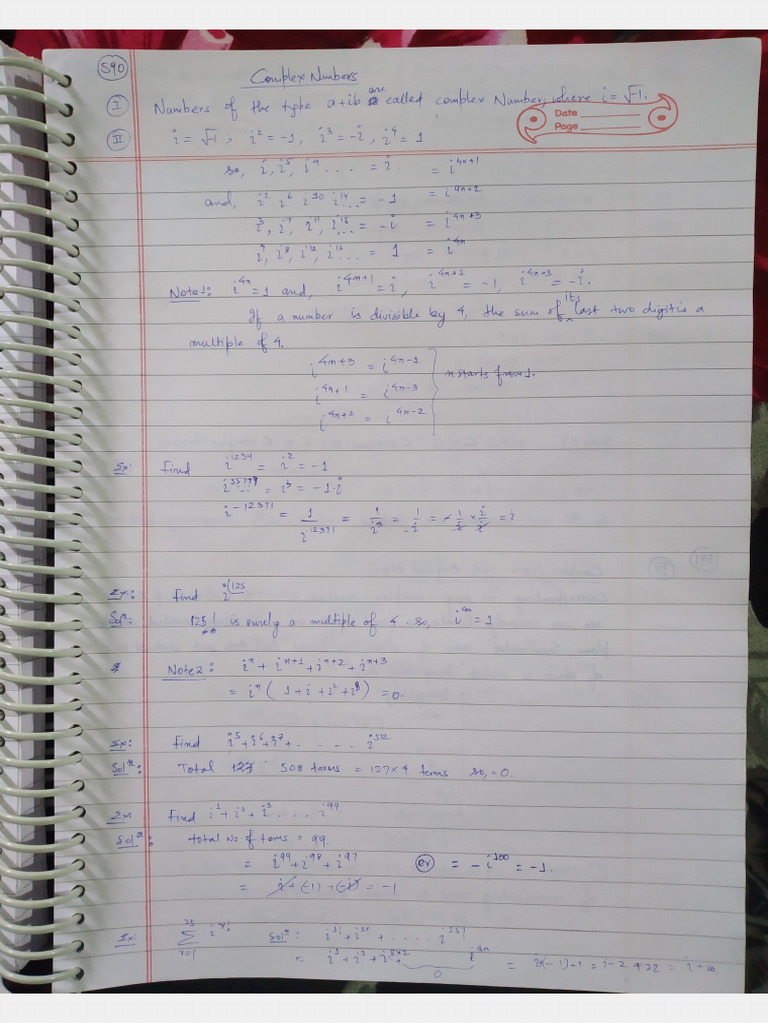 590
Complex Numbers
I Numbers of the type a+ib are called complex Number, where i = √-1.
Date
Page
II i = √-1, i² = -1, i³ = -i, i⁴ = 1.
so, i, i⁵, i⁹ .... = i = i⁴ⁿ⁺¹
and, i² i⁶ i¹⁰ i¹⁴... = -1 = i⁴ⁿ⁺²
i³, i⁷, i¹¹, i¹⁵... = -i = i⁴ⁿ⁺³
i⁴, i⁸, i¹², i¹⁶... = 1 = i⁴ⁿ
Note1: i⁴ⁿ = 1 and, i⁴ⁿ⁺¹ = i, i⁴ⁿ⁺² = -1, i⁴ⁿ⁺³ = -i.
If a number is divisible by 4, the sum of its last two digit is a
multiple of 4.
i⁴ⁿ⁺³ = i⁴ⁿ⁻¹
i⁴ⁿ⁺¹ = i⁴ⁿ⁻³ } n starts from 1.
i⁴ⁿ⁺² = i⁴ⁿ⁻²
Ex: Find i¹²³⁴ = i² = -1
= i³ = -1·i
i⁻¹²³⁷¹ = 1/i¹²³⁷¹ = 1/i³ = 1/-i = -1/i × i/i = i
Ex.: Find
Solⁿ: 125! is surely a multiple of 4. so, i⁴ⁿ = 1
Note2: iⁿ + iⁿ⁺¹ + iⁿ⁺² + iⁿ⁺³
= iⁿ ( 1 + i + i² + i³ ) = 0.
Ex: Find i⁵+i⁶+i⁷+ ....... i⁵¹²
Solⁿ: Total 508 terms = 127×4 terms so, = 0.
Ex: Find i¹+i²+i³ .... i⁹⁹
Solⁿ: total No of terms = 99.
= i⁹⁹ + i⁹⁸ + i⁹⁷ or = -i¹⁰⁰ = -1.
= i + (-1) + (-i) = -1
Ex: Σ r=1 25 i^r! Solⁿ: i^1! + i^2! + ..... i^25!
= i¹ + i² + i^3×2 + i⁴ⁿ 0 = i+(-1)-1 = i-2+22 = i+20